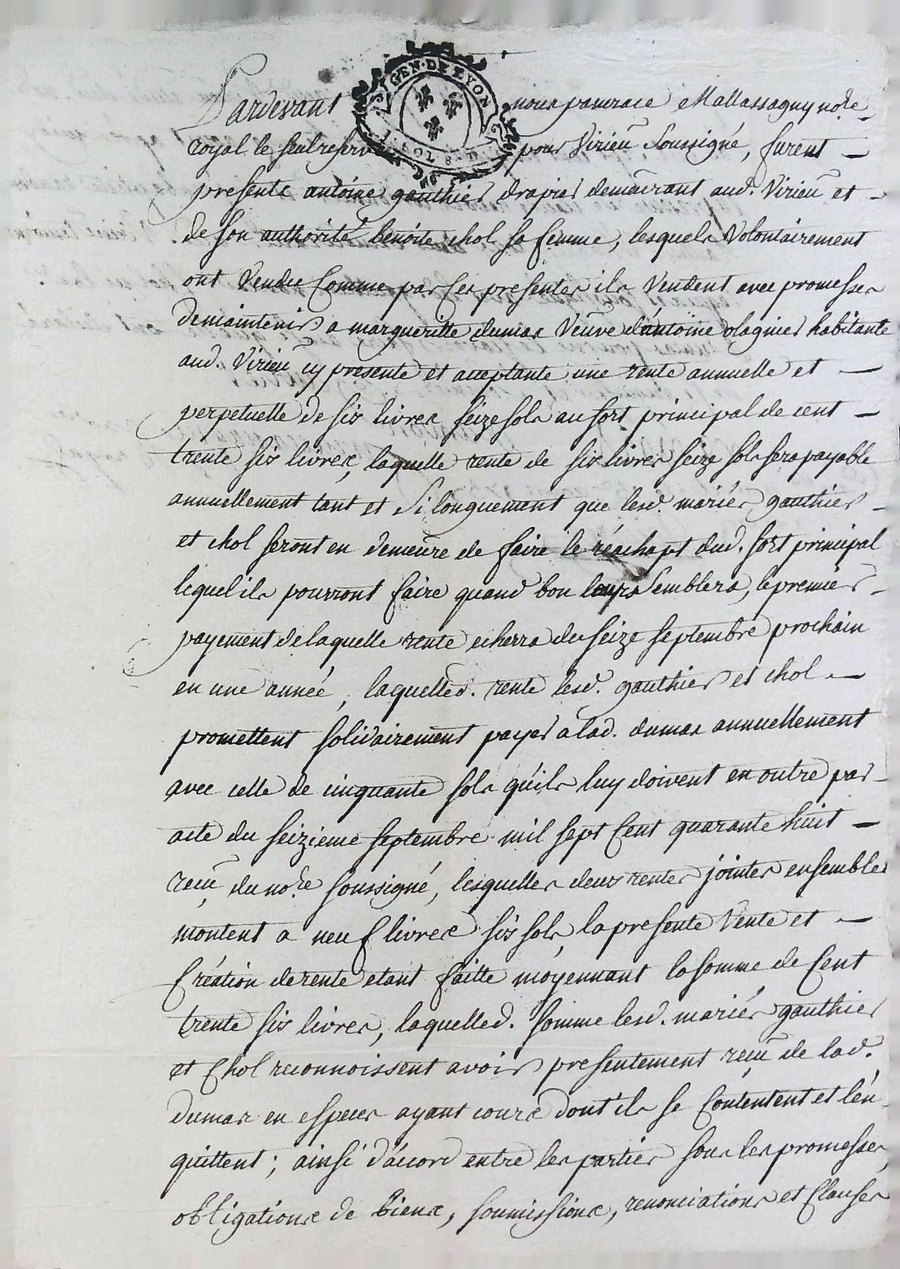 GEN·DE LYON
Pardevant nous pancrace Mallassagny no.re
royal le seul reservé pour Virieu soussigné, furent –
presents antoine gauthier drapier demeurant aud. Virieu et –
de son authorité benoite chol sa femme, lesquels Volontairement
ont Vendu Comme par ses presentes ils Vendent avec promesses
de maintenir a margueritte dumas Veuve d'antoine olagnier habitante
aud. Virieu cy presente et acceptante une rente annuelle et –
perpetuelle de six livres seize sols au sort principal de cent –
trente six livres, laquelle rente de six livres seize sols sera payable
annuellement tant et si longuement que lesd. mariés gauthier –
et chol seront en demeure de faire le réachapt dud. sort principal
lequel ils pourront faire quand bon leurs semblera, le premier –
payement de laquelle rente echerra du seize septembre prochain
en une année, laquelled. rente lesd. gauthier et chol –
promettent solidairement payer a lad. dumas annuellement
avec celle de cinquante sols qu'ils luy doivent en outre par –
acte du seizieme septembre mil sept Cent quarante huit –
reçu du no.re soussigné, lesquelles deux rentes jointes ensembles
montent a neuf livres six sols, la presente Vente et –
Création de rente etant faitte moyennant la somme de Cent
trente six livres, laquelled. somme lesd. mariés gauthier
et Chol reconnoissent avoir presentement reçu de lad.
dumas en especes ayant cours dont ils se Contentent et l'en
quittent; ainsi d'accord entre les parties sous les promesses,
obligations de biens, soumissions, renonciations et Clauses